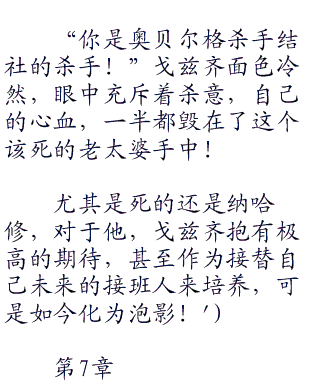 “你是奥贝尔格杀手结
社的杀手！”戈兹齐面色冷
然，眼中充斥着杀意，自己
的心血，一半都毁在了这个
该死的老太婆手中！
尤其是死的还是纳哈
修，对于他，戈兹齐抱有极
高的期待，甚至作为接替自
己未来的接班人来培养，可
是如今化为泡影！′）
第7章